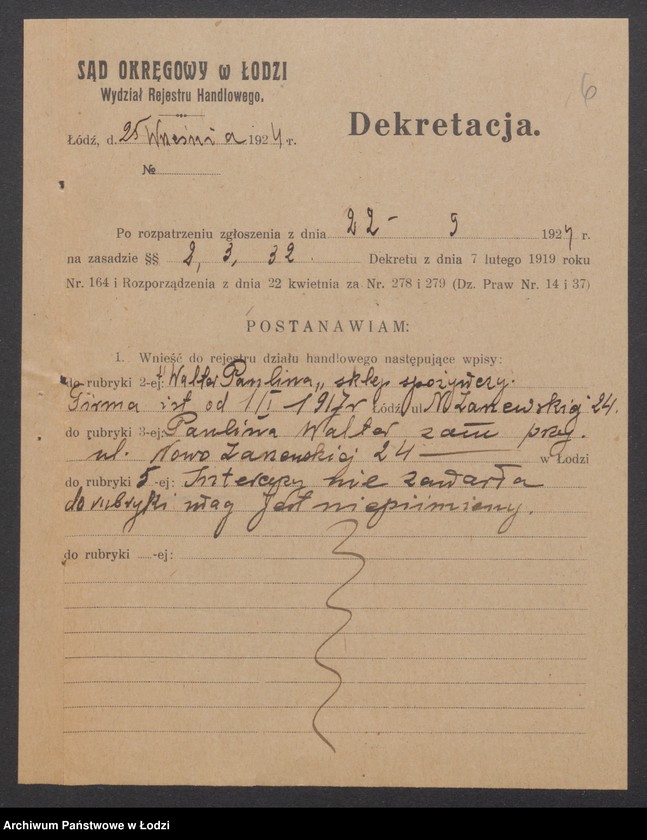 SĄD OKRĘGOWY w ŁODZI
Wydział Rejestru Handlowego.
6
Łódź, d. 25 Września 1924 r.
Dekretacja.
№
Po rozpatrzeniu zgłoszenia z dnia 22 - 9 1924 r.
na zasadzie §§ 2, 3, 32 Dekretu z dnia 7 lutego 1919 roku
Nr. 164 i Rozporządzenia z dnia 22 kwietnia za Nr. 278 i 279 (Dz. Praw Nr. 14 i 37)
POSTANAWIAM:
1. Wnieść do rejestru działu handlowego następujące wpisy:
do rubryki 2-ej: "Walter Paulina„ sklep spożywczy.
Firma ist od 1/I 1917r Łódź, ul N Zarzewskiej 24.
do rubryki 3-ej: Paulina Walter zam przy.
ul. Nowo Zarzewskiej 24 w Łodzi
do rubryki 5-ej: Intercyzy nie zawarła
do rubryki uwag jest niepiśmienny.
do rubryki -ej:
Archiwum Państwowe w Łodzi